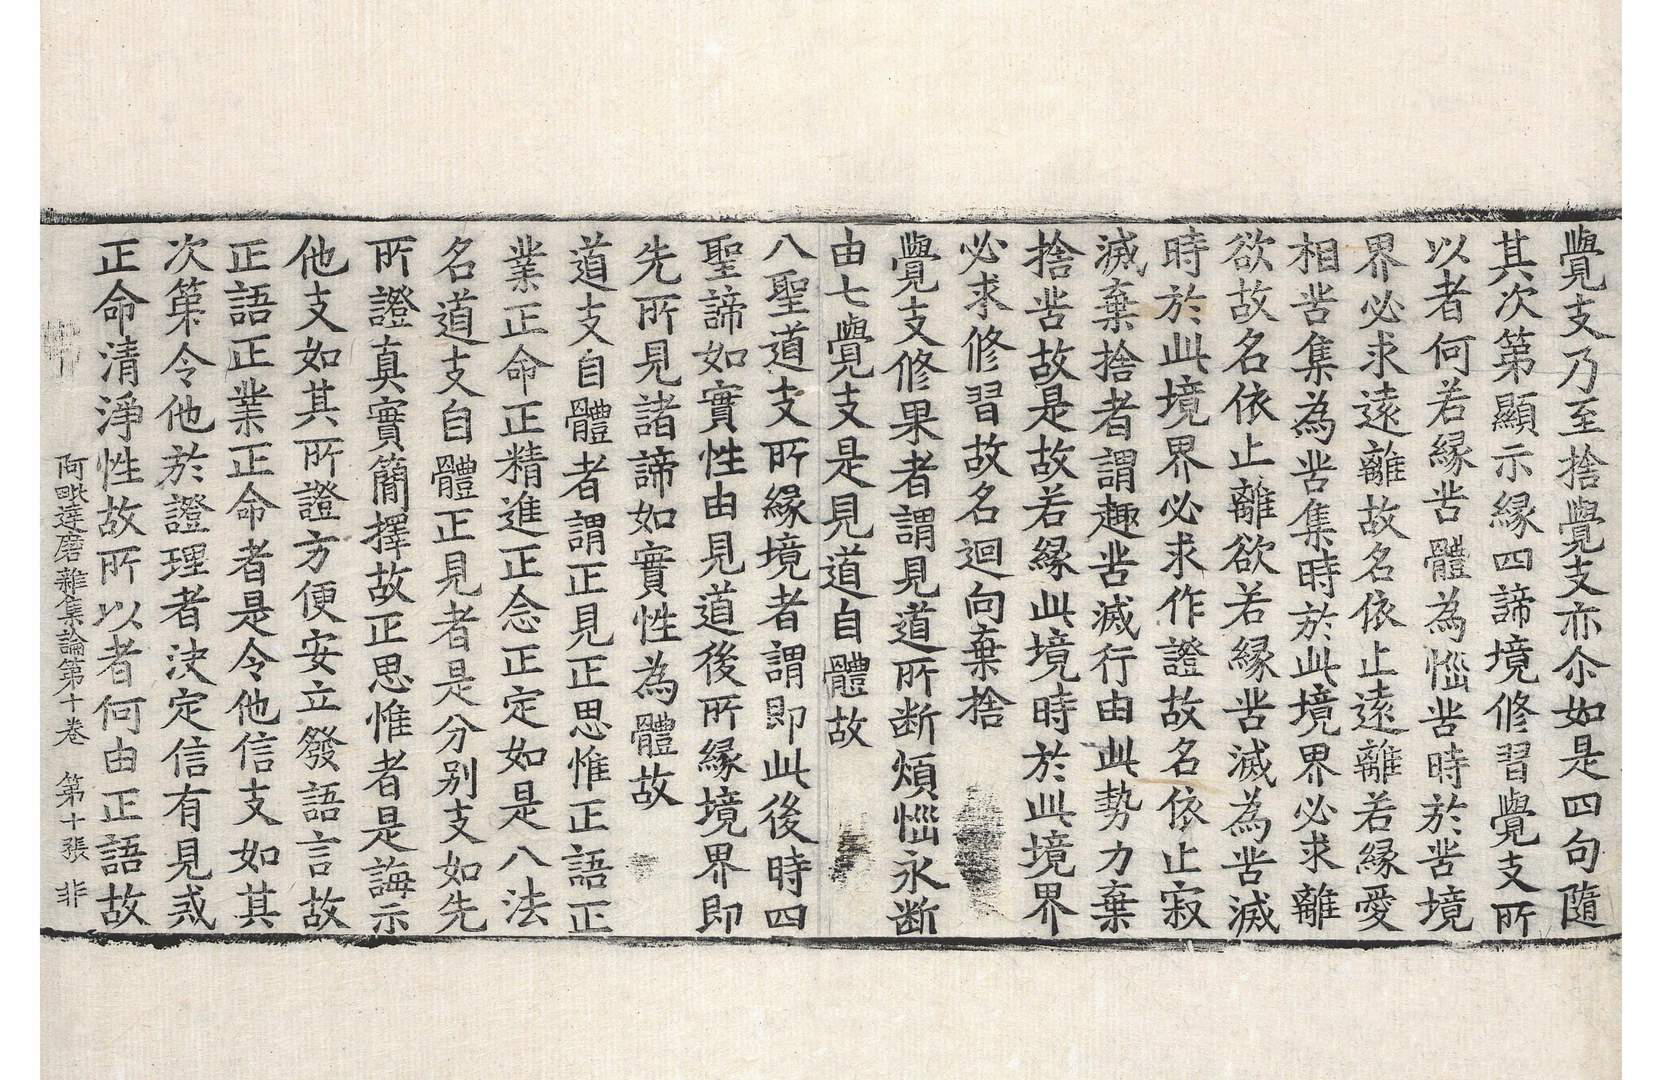 覺支乃至捨覺支亦尒如是四句隨
其次第顯示緣四諦境修習覺支所
以者何若緣苦體為惱苦時於苦境
界必求遠離故名依止遠離若緣愛
相苦集為苦集時於此境界必求離
欲故名依止離欲若緣苦滅為苦滅
時於此境界必求作證故名依止寂
滅棄捨者謂趣苦滅行由此勢力棄
捨苦故是故若緣此境時於此境界
必求修習故名迴向棄捨
覺支修果者謂見道所断煩惱永断
由七覺支是見道自體故
八聖道支所緣境者謂即此後時四
聖諦如實性由見道後所緣境界即
先所見諸諦如實性為體故
道支自體者謂正見正思惟正語正
業正命正精進正念正定如是八法
名道支自體正見者是分别支如先
所證真實簡擇故正思惟者是誨示
他支如其所證方便安立發語言故
正語正業正命者是令他信支如其
次第令他於證理者決定信有見戒
正命清淨性故所以者何由正語故
阿毗達磨雜集論第十卷 第十張 非